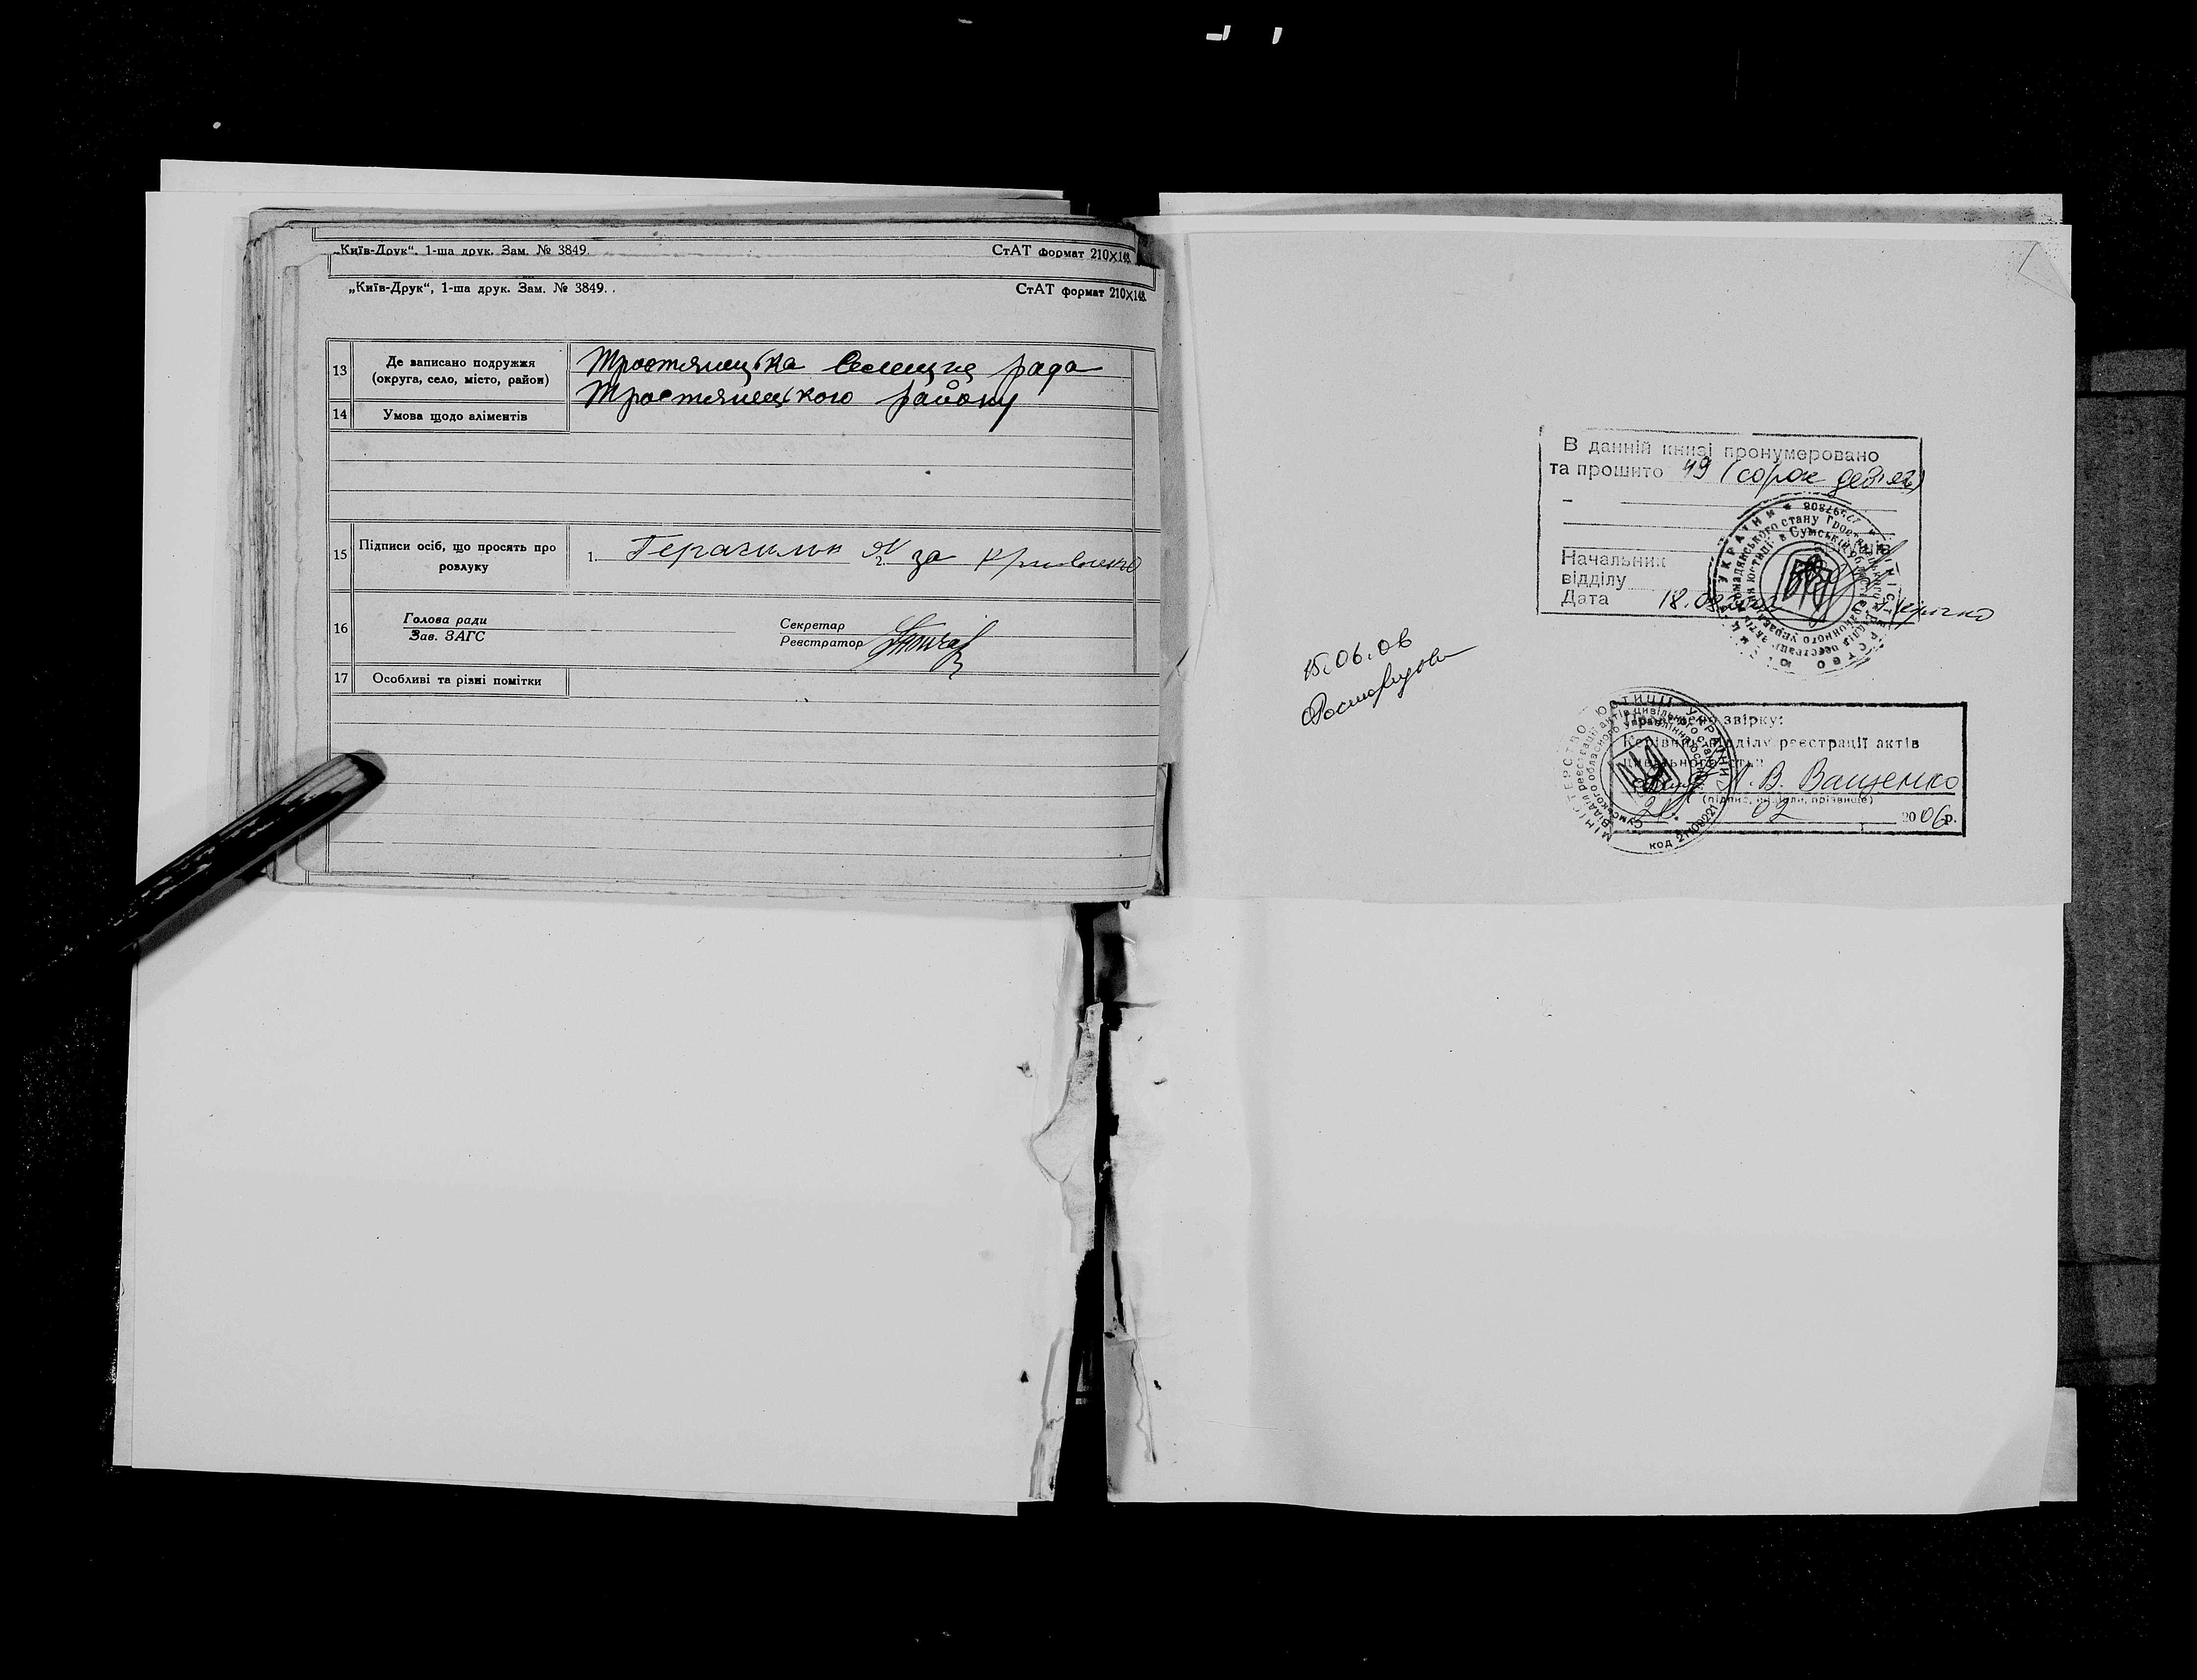 „Київ-Друк“, 1-ша друк. Зам. № 3849.
СтАТ формат 210×148.
„Київ-Друк“, 1-ша друк. Зам. № 3849.
СтАТ формат 210×148.
13
Де записано подружжя
(округа, село, місто, район)
Тростянецька Селищна рада
Тростянецького району
14
Умова щодо аліментів
15
Підписи осіб, що просять про
розлуку
1.
2.
за
16
Голова ради
Зав. ЗАГС
Секретар
Реєстратор
17
Особливі та різні помітки
В данній книзі пронумеровано
та прошито 49 (сорок девять)
Начальник
відділу
Дата
15.06.06
Проведено звірку:
Керівник відділу реєстрації актів
цивільного стану
Л. В. Ващенко
(підпис, ініціали, прізвище)
02 2006р.
МІНІСТЕРСТВО ЮСТИЦІЇ УКРАЇНИ
код 21109221